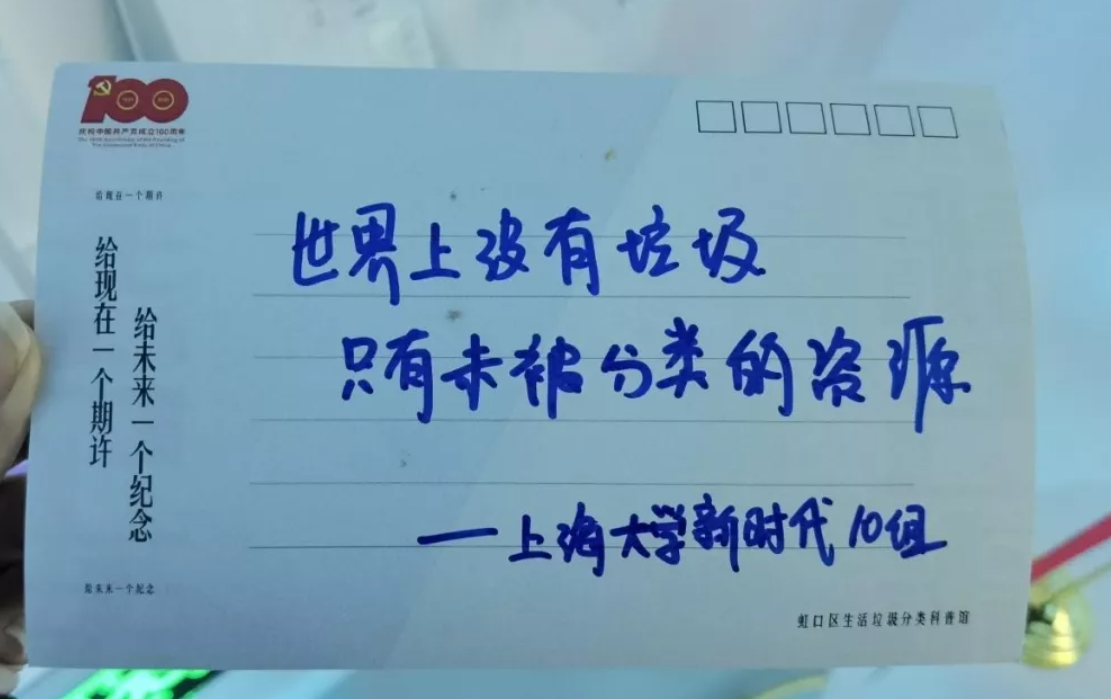 100
庆祝中国共产党成立100周年
The 100th Anniversary of the Founding of
The Communist Party of China
给现在一个期许
给现在一个期许
给未来一个纪念
给未来一个纪念
世界上没有垃圾
只有未被分类的资源
——上海大学新时代10组
虹口区生活垃圾分类科普馆